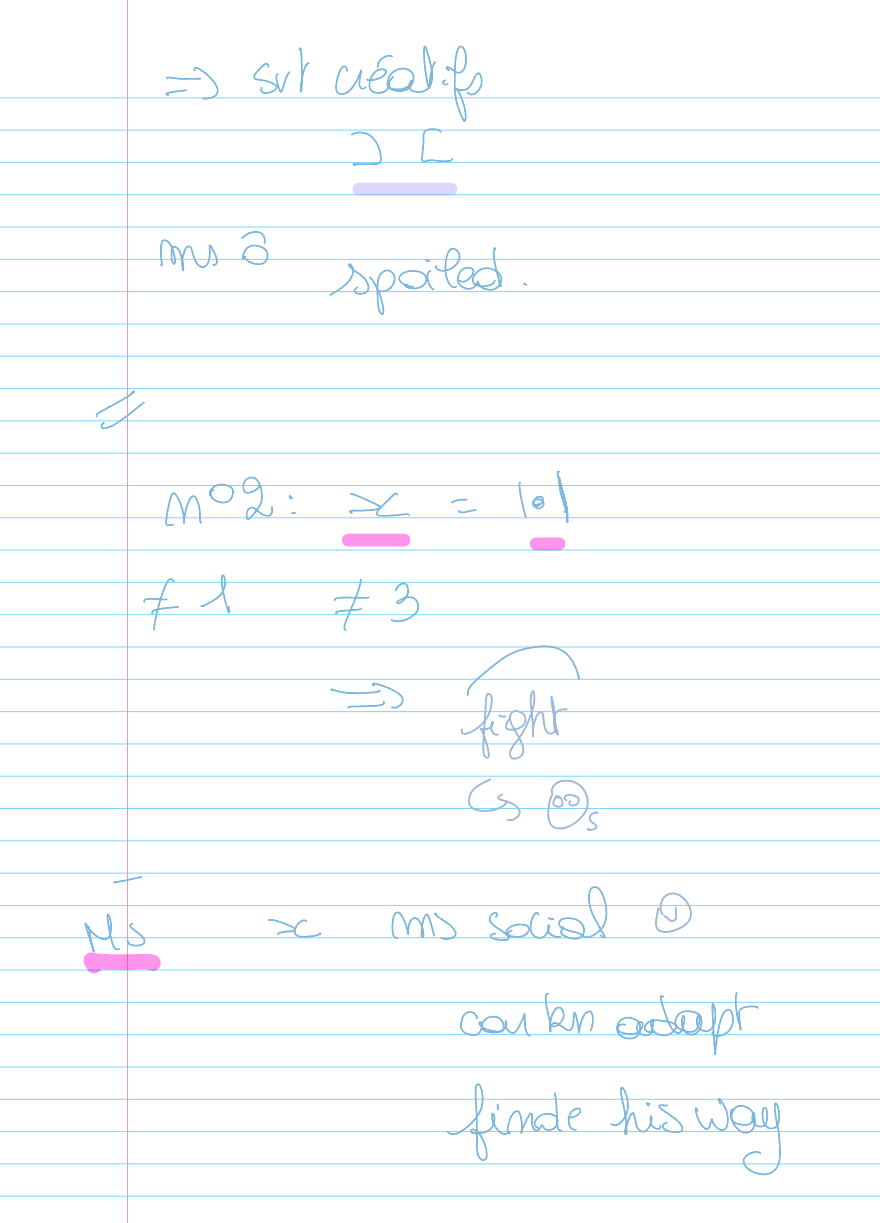 ⇒ svt créatifs
ms ô
spoiled.
//
N°2 : = |o|
≠ 1 ≠ 3
⇒ fight
↳ s
Ms ms social
car kn adapt
finde his way